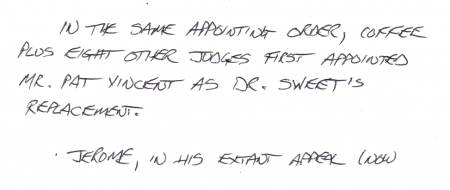 IN THE SAME APPOINTING ORDER, COFFEE
PLUS EIGHT OTHER JUDGES FIRST APPOINTED
MR. PAT VINCENT AS DR. SWEET'S
REPLACEMENT.
· JEROME, IN HIS EXTANT APPEAL (NOW